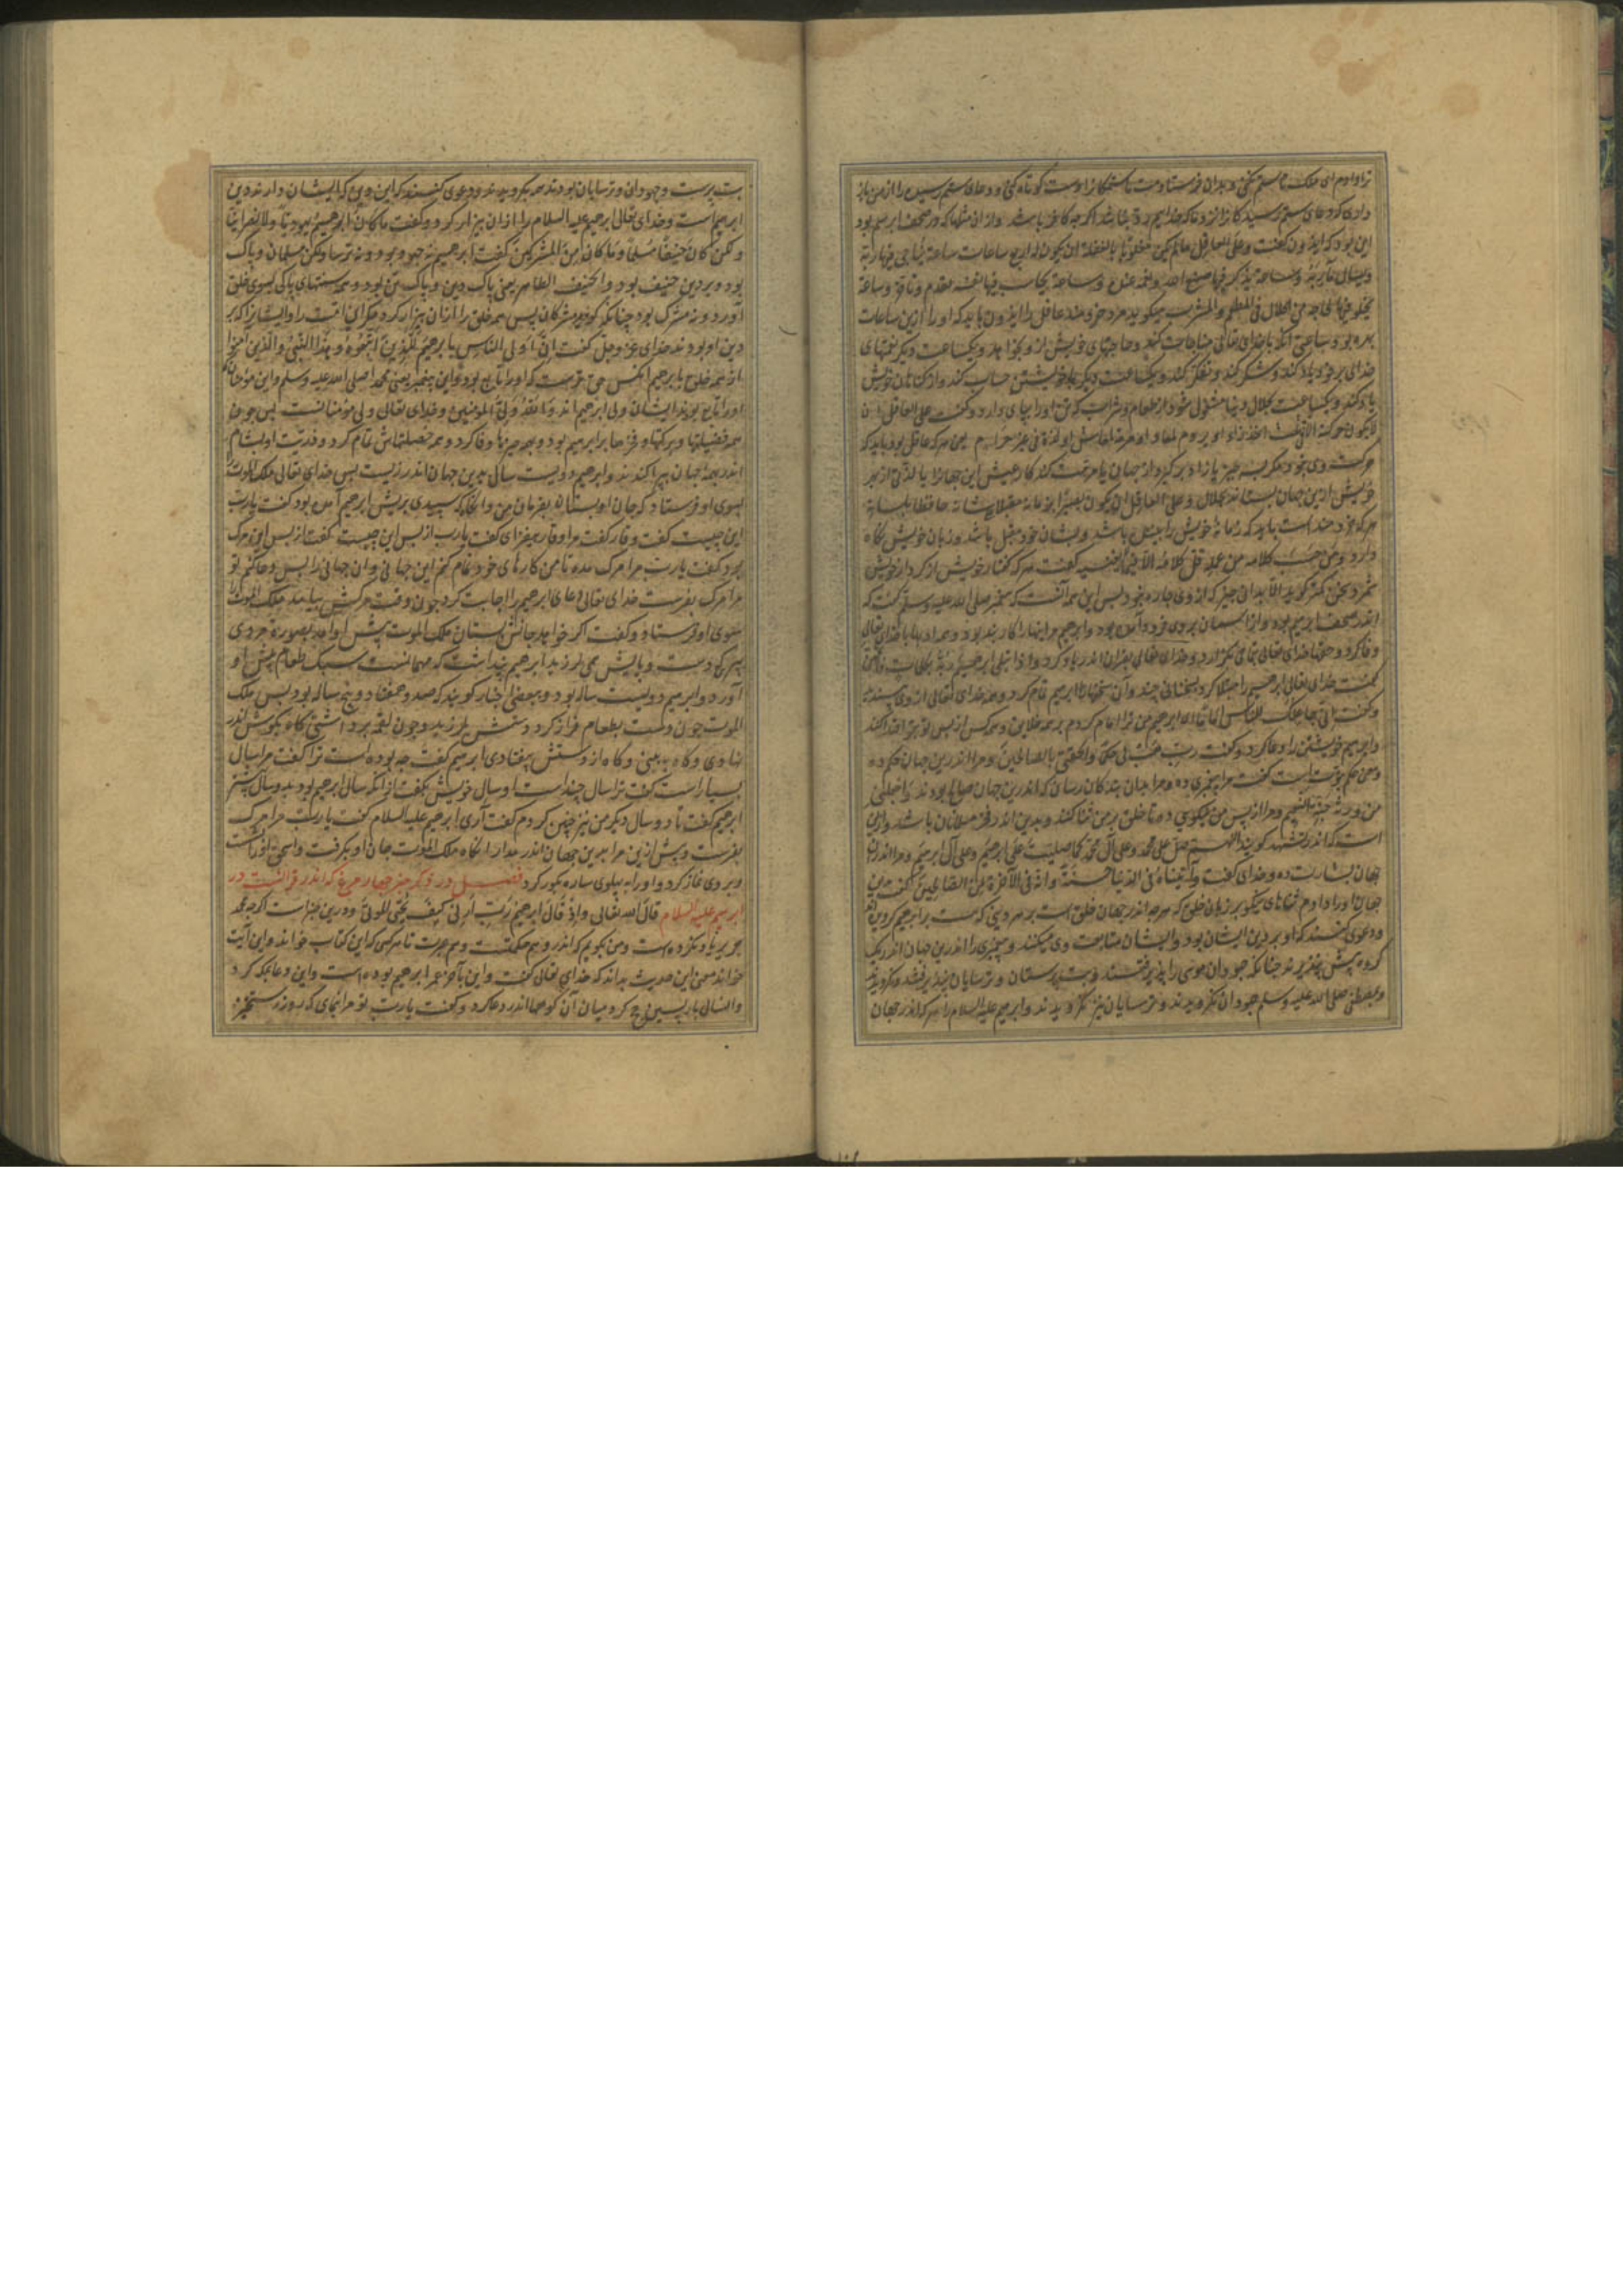 ترا دادم ای ملک تا ستم نکنی و بدان فرستادمت تا ستمکارانرا دست کوتاه کنی و دعای ستم رسیده را از من باز
داری که دعای ستم رسیدکانرا نزد ما که خدایم رد نباشد اکرچه کافر باشد و از ان مثلها که در صحف ابرهیم بود
این بود که ایذون کفت وعلی العاقل مالم یکن مغلوبا ان یکون له اربع ساعات ساعة یناجی فیها ربه
ویسال مآربه وساعة یذکر فیها صنع الله وساعة یحاسب فیها نفسه وساعة
یخلو فیها لحاجة من الحلال فی المطعم والمشرب میکوید مرد خردمند عاقل را ایذون باید که اورا ازین ساعات
بهره بود ساعتی انکه با خدای تعالی مناجات کند وحاجتهای خویش از و بخواهد ویکساعت دیکر نعمتهای
خدای برخود یاد کند وشکر کند وتفکر کند ویکساعت دیکر با خویشتن حساب کند واز کناهان خویش
یاد کند ویکساعت بحلال دنیا مشغول شود از طعام وشراب که تن اورا بپای دارد وکفت علی العاقل ان
لایکون حرکته الا فی ثلث زاد او لمعاد او مرمة لمعاش او لذة فی غیر حرام یعنی هرکه عاقل بود باید که
حرکت وی نبود مکر بسه چیز
خویش ازین جهان بستاند بحلال وعلی العاقل ان یکون بصیرا بزمانه مقبلا علی شانه حافظا للسانه
هرکه خردمند است باید که زمانهٔ خویش را بیننده باشد وبشان خود مقبل باشد وزبان خویش نکاه
دارد ومن حسب کلامه من عمله قل کلامه الا فیما یعنیه کفت هرکه کفتار خویش از کردار خویش
شمرد سخن کمتر کوید الا بدانی چیز که از وی چاره نبود پس این همه آنست که پیغمبر صلی الله علیه وسلم کفت که
اندر صحف ابرهیم بود واز اسمان بروی فرود آمده بود وابرهیم مر اینها را کاربند بود
وفا کرد وحقهای خدای تعالی بتمامی بکزارد وخدای تعالی بقران اندر یاد کرد واذ ابتلی ابرهیم ربه بکلمات فاتمهن
کفت خدای تعالی ابرهیم را مبتلا کرد بسخنانی چند وآن سخنها را ابرهیم تمام کرد وهمه خدای تعالی از وی پسندید
وکفت انی جاعلک للناس اماما ای ابرهیم من ترا امام کردم بر همه خلایق وهمه کس از پس تو بتو اقتدا کنند
وابرهیم خویشتن را دعا کرد وکفت رب هب لی حکما والحقنی بالصالحین ومرا اندرین جهان حکم ده
ومن حکم نبوت است کفت مرا پیغمبری ده ومرا بدان بندکان رسان که اندرین جهان صالح بودند واجعلنی
من ورثة جنة النعیم ومرا از پس من نیکویی ده تا خلق بر من ثنا کنند وبدین اندر فخر مسلمانان باشد وازین
است که اندر تشهد کویند اللهم صل علی محمد وعلی آل محمد کما صلیت علی ابرهیم وعلی آل ابرهیم ومرا اندران
جهان بشارت ده وخدای کفت وآتیناه فی الدنیا حسنة وانه فی الآخرة لمن الصالحین کفت من این
جهان اورا دادم ثناهای نیکو بر زبان خلق که هرچه اندر جهان خلق است بر هر دینی که هست بر ابرهیم کرویده
ودعوی کنند که او بر دین ایشان بود وایشان متابعت وی میکنند وپیغمبری را اندرین جهان اندر یک
کروه بیش نپذیرند چنانکه جهودان موسی را پذیرفتند وبت پرستان وترسایان نپذیرفتند ونکرویدند
وبمصطفی صلی الله علیه وسلم جهودان نکرویدند وترسایان نیز نکرویدند وابرهیم علیه السلام را هرکه اندر جهان
بت پرست وجهودان وترسایان بودند همه بکرویدند ودعوی کنند که این دین که ایشان دارند دین
ابرهیم است وخدای تعالی ابرهیم علیه السلام را از ان بیزار کرد وکفت ما کان ابرهیم یهودیا ولا نصرانیا
ولکن کان حنیفا مسلما وما کان من المشرکین کفت ابرهیم نه جهود بود ونه ترسا ولکن مسلمان وپاک
بود وبر دین حنیف بود والحنیف الطاهر یعنی پاک دین وپاک تن بود وهمه سنتهای پاکی بسوی خلق
آورد ونه مشرک بود چنانکه کویند مشرکان پس همه خلق را از ان بیزار کرد مکر این امت را وایشانرا که بر
دین او بودند خدای عز وجل کفت ان اولی الناس بابرهیم للذین اتبعوه وهذا النبی والذین امنوا
از همه خلق بابرهیم آنکس حق ترست که اورا تابع بود واین پیغمبر یعنی محمد صلی الله علیه وسلم واین مؤمنان که
اورا تابع بودند ایشان ولی ابرهیم اند والله ولی المؤمنین وخدای تعالی ولی مؤمنانست پس چون
همه فضیلتها وبرکتها وفخرها بر ابرهیم بود وبهمه چیزها وفا کرد وهمه خصلتهاش تمام کرد وذریت او بشام
اندر بهمه جهان بپراکندند وابرهیم دویست سال بدین جهان اندر زیست پس خدای تعالی ملک الموت را
بسوی او فرستاد که جان او بستان بفرمان من وانکاه که سپیدی بریش ابرهیم آمده بود کفت یارب
این چیست کفت وقار کفت مرا وقار بیفزای کفت یارب از پس این چیست کفت از پس این مرک
بود کفت یارب مرا مرک مده تا من کارهای خود تمام کنم این جهانی وآن جهانی را پس دعا کنم تو
مرا مرک بفرست خدای تعالی دعای ابرهیم را اجابت کرد چون وقت مرکش بیامد ملک الموت را
سوی او فرستاد وکفت اکر خواهد جانش بستان ملک الموت پیش او آمد بصورت مردی
پیر که دست وپایش همی لرزید ابرهیم پنداشت که مهمانست سبک طعام پیش او
آورد وابرهیم دویست ساله بود وببعضی اخبار کویند که صد وهفتاد وپنج ساله بود پس ملک
الموت چون دست بطعام فراز کرد دستش بلرزید وچون لقمه برداشتی کاه بکوش اندر
نهادی وکاه به بینی وکاه از دستش بیفتادی ابرهیم کفت چه بوده است ترا کفت مرا سال
بسیار است کفت ترا سال چند است او سال خویش بکفت از انکه سال ابرهیم بود بدو سال بیشتر
ابرهیم کفت تا دو سال دیکر من نیز چنین کردم کفت آری ابرهیم علیه السلام کفت یارب مرا مرک
بفرست وبیش ازین مرا بدین جهان اندر مدار انکاه ملک الموت جان او بکرفت واسحق اورا بشست
وبر وی نماز کرد واورا به پهلوی ساره بکور کرد فصل در ذکر خبر چهار مرغ که اندر قرآنست در
ابرهیم علیه السلام قال الله تعالی واذ قال ابرهیم رب ارنی کیف تحیی الموتی ودرین خبر است اکرچه محمد
جریر یاد نکرده است ومن بکویم که اندر و هم حکمتست وهم عبرت تا هرکس که این کتاب خواند واین آیت
خواند معنی این حدیث بداند که خدای تعالی کفت واین بآخر عمر ابرهیم بوده است واین دعا بمکه کرد
وانسال باز پسین حج کرد میان آن کوهها اندر دعا کرد وکفت یارب تو مرا بنمای که روز رستخیز